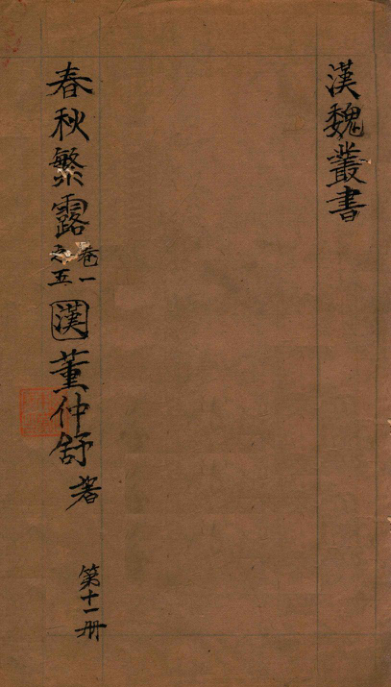 漢魏叢書
春秋繁露 卷一之五 漢 董仲舒 著
第十一册